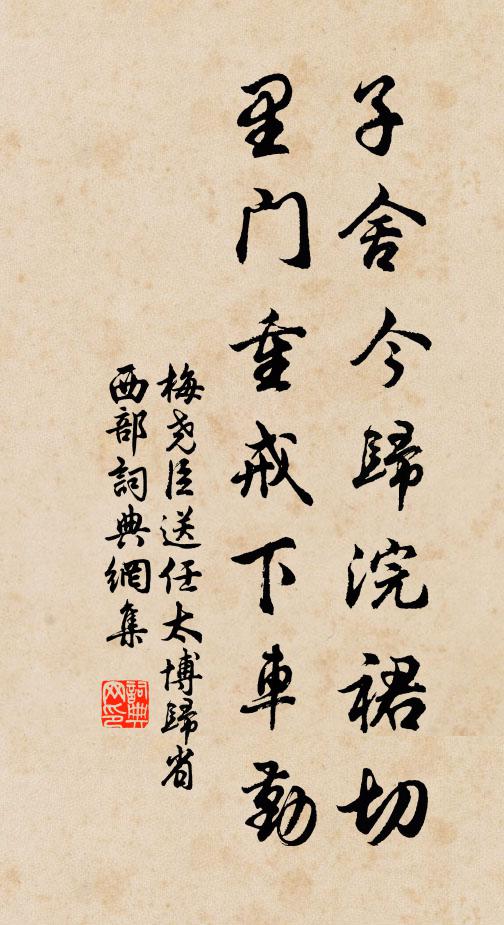 子舍今歸浣裙切
里门重戒下車勤
梅尧臣送任太博歸省
西部詞典網集
詞典
网印